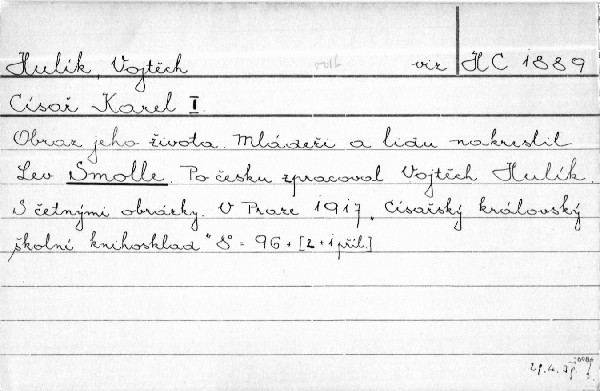 Hulík, Vojtěch viz HC 1889
Císař Karel I.
Obraz jeho života. Mládeži a lidu nakreslil
Lev Smolle. Po česku zpracoval Vojtěch Hulík.
S četnými obrázky. V Praze 1917. Císařský královský
školní knihosklad 8° 96 + [2 + 1 příl.]